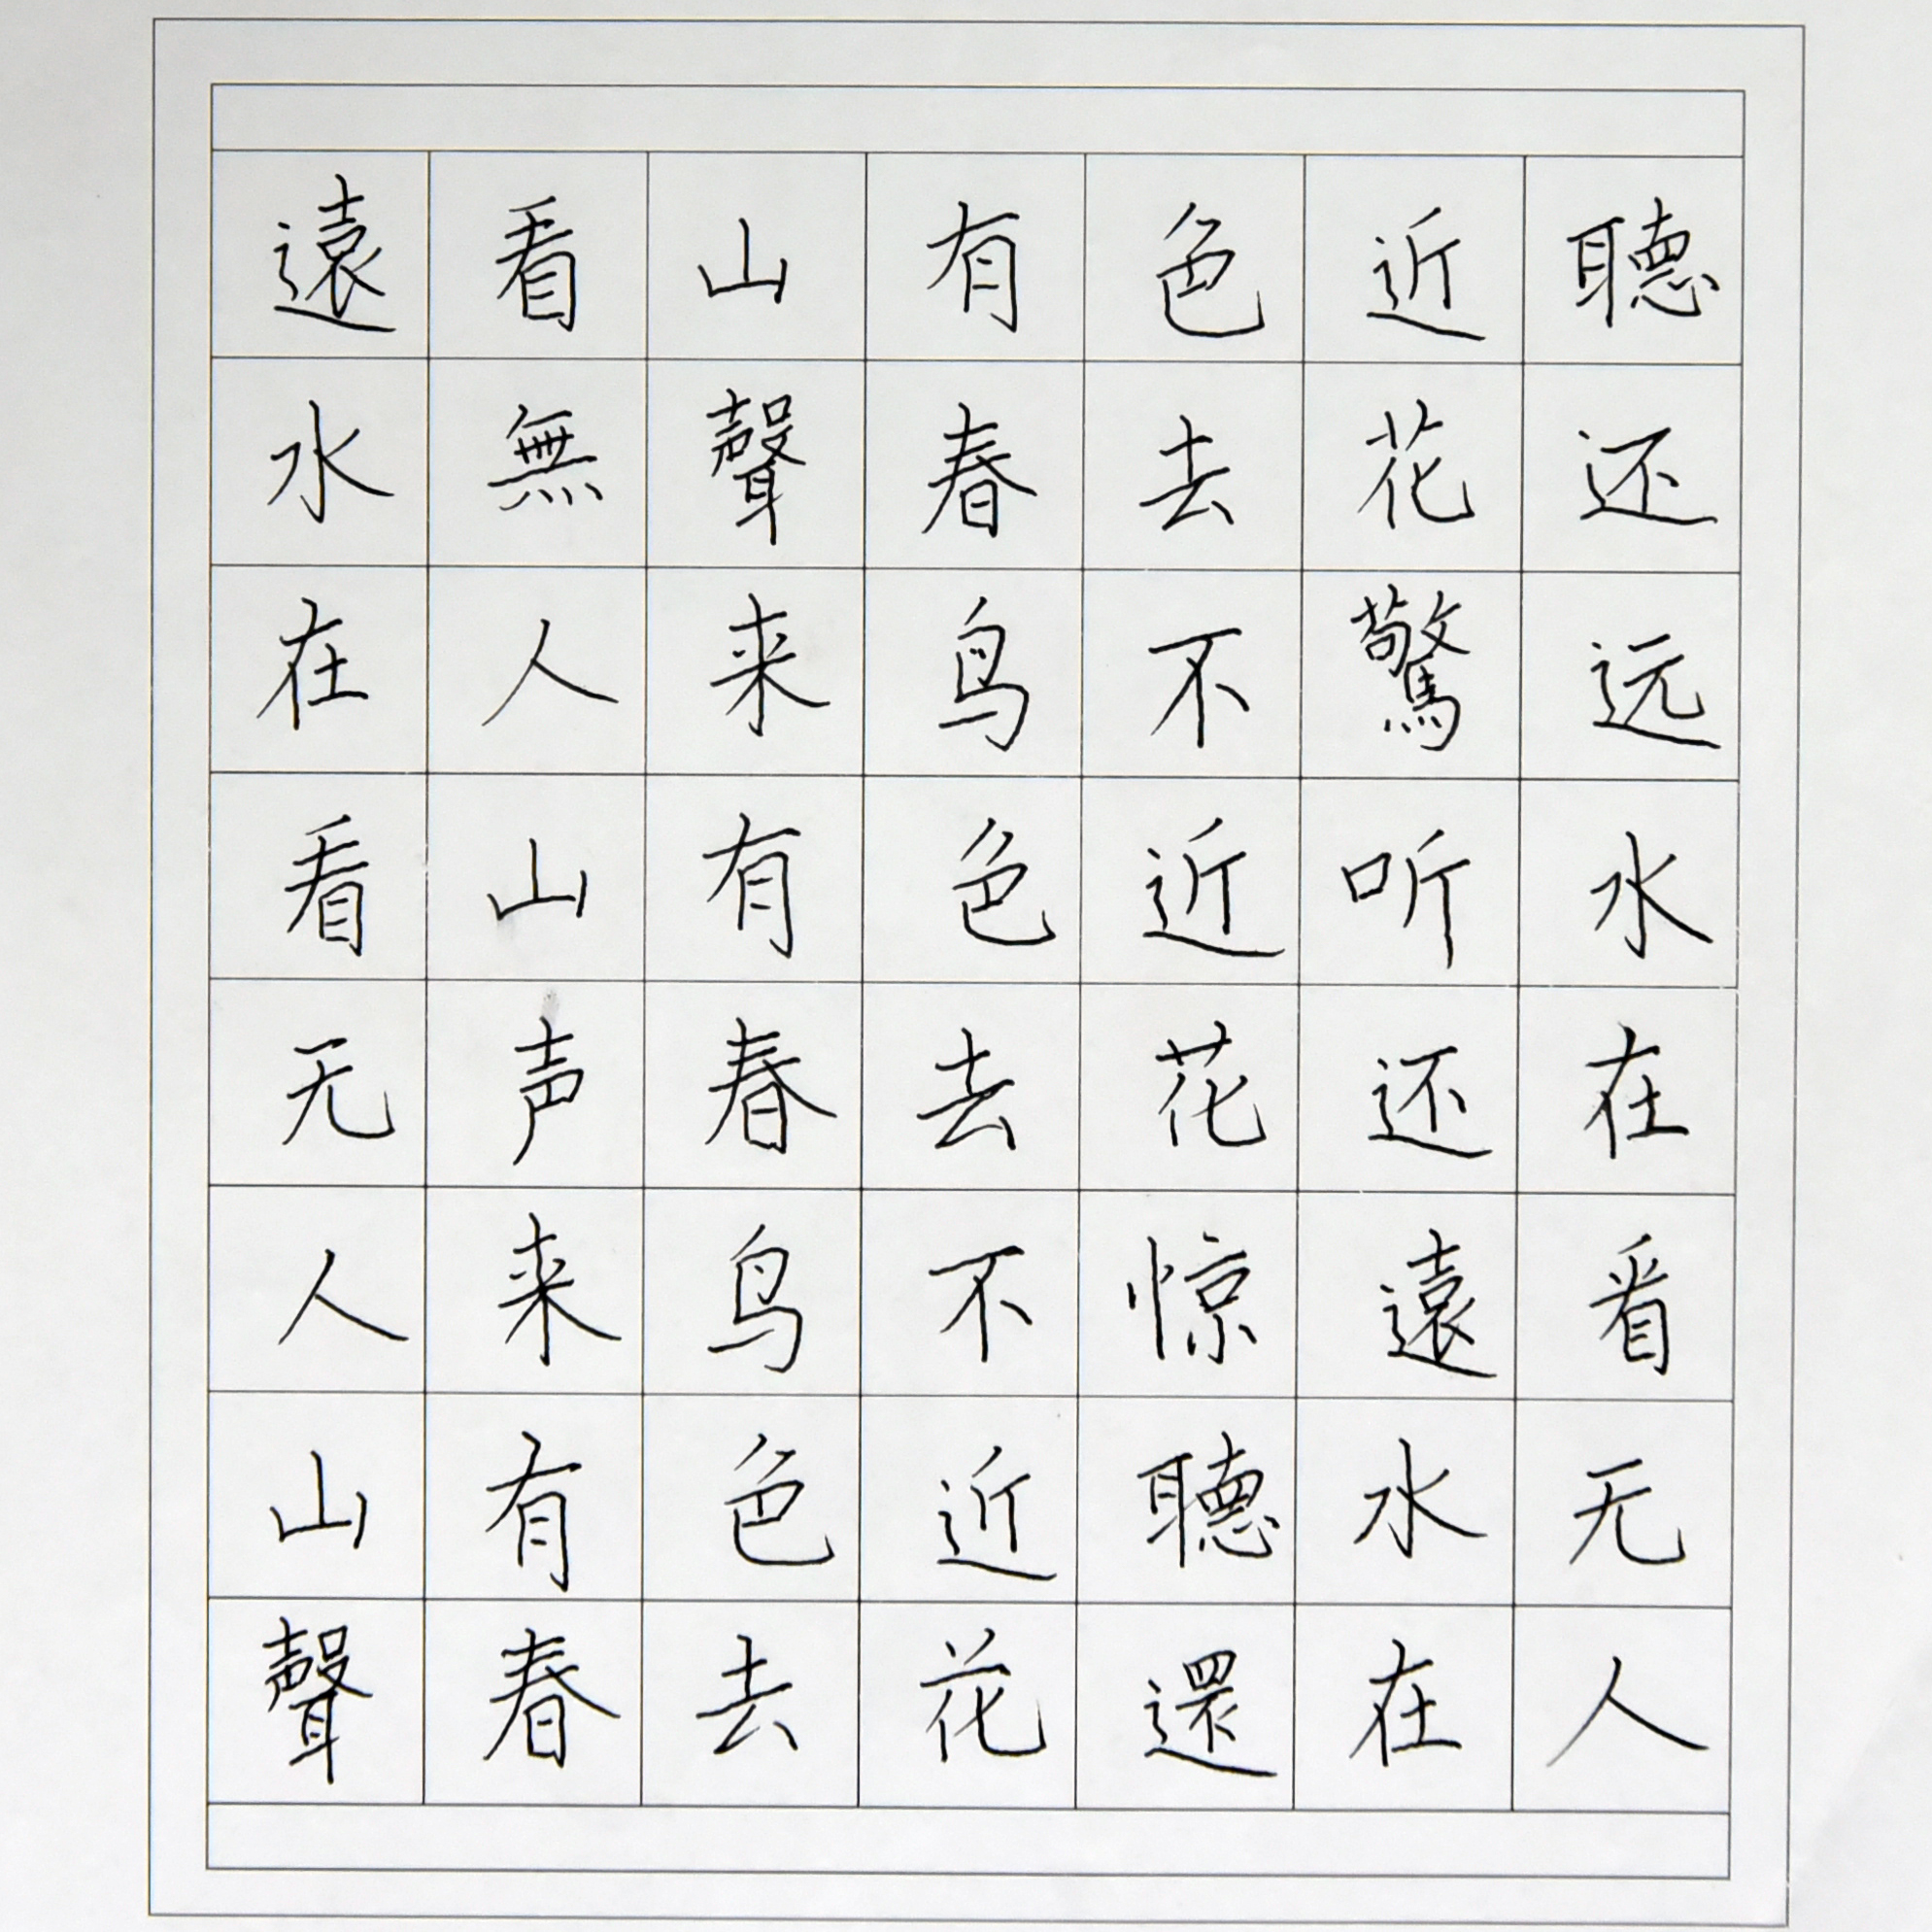 遠看山有色近聽
水無聲春去花还
在人来鸟不驚远
看山有色近听水
无声春去花还在
人来鸟不惊遠看
山有色近聽水无
聲春去花還在人